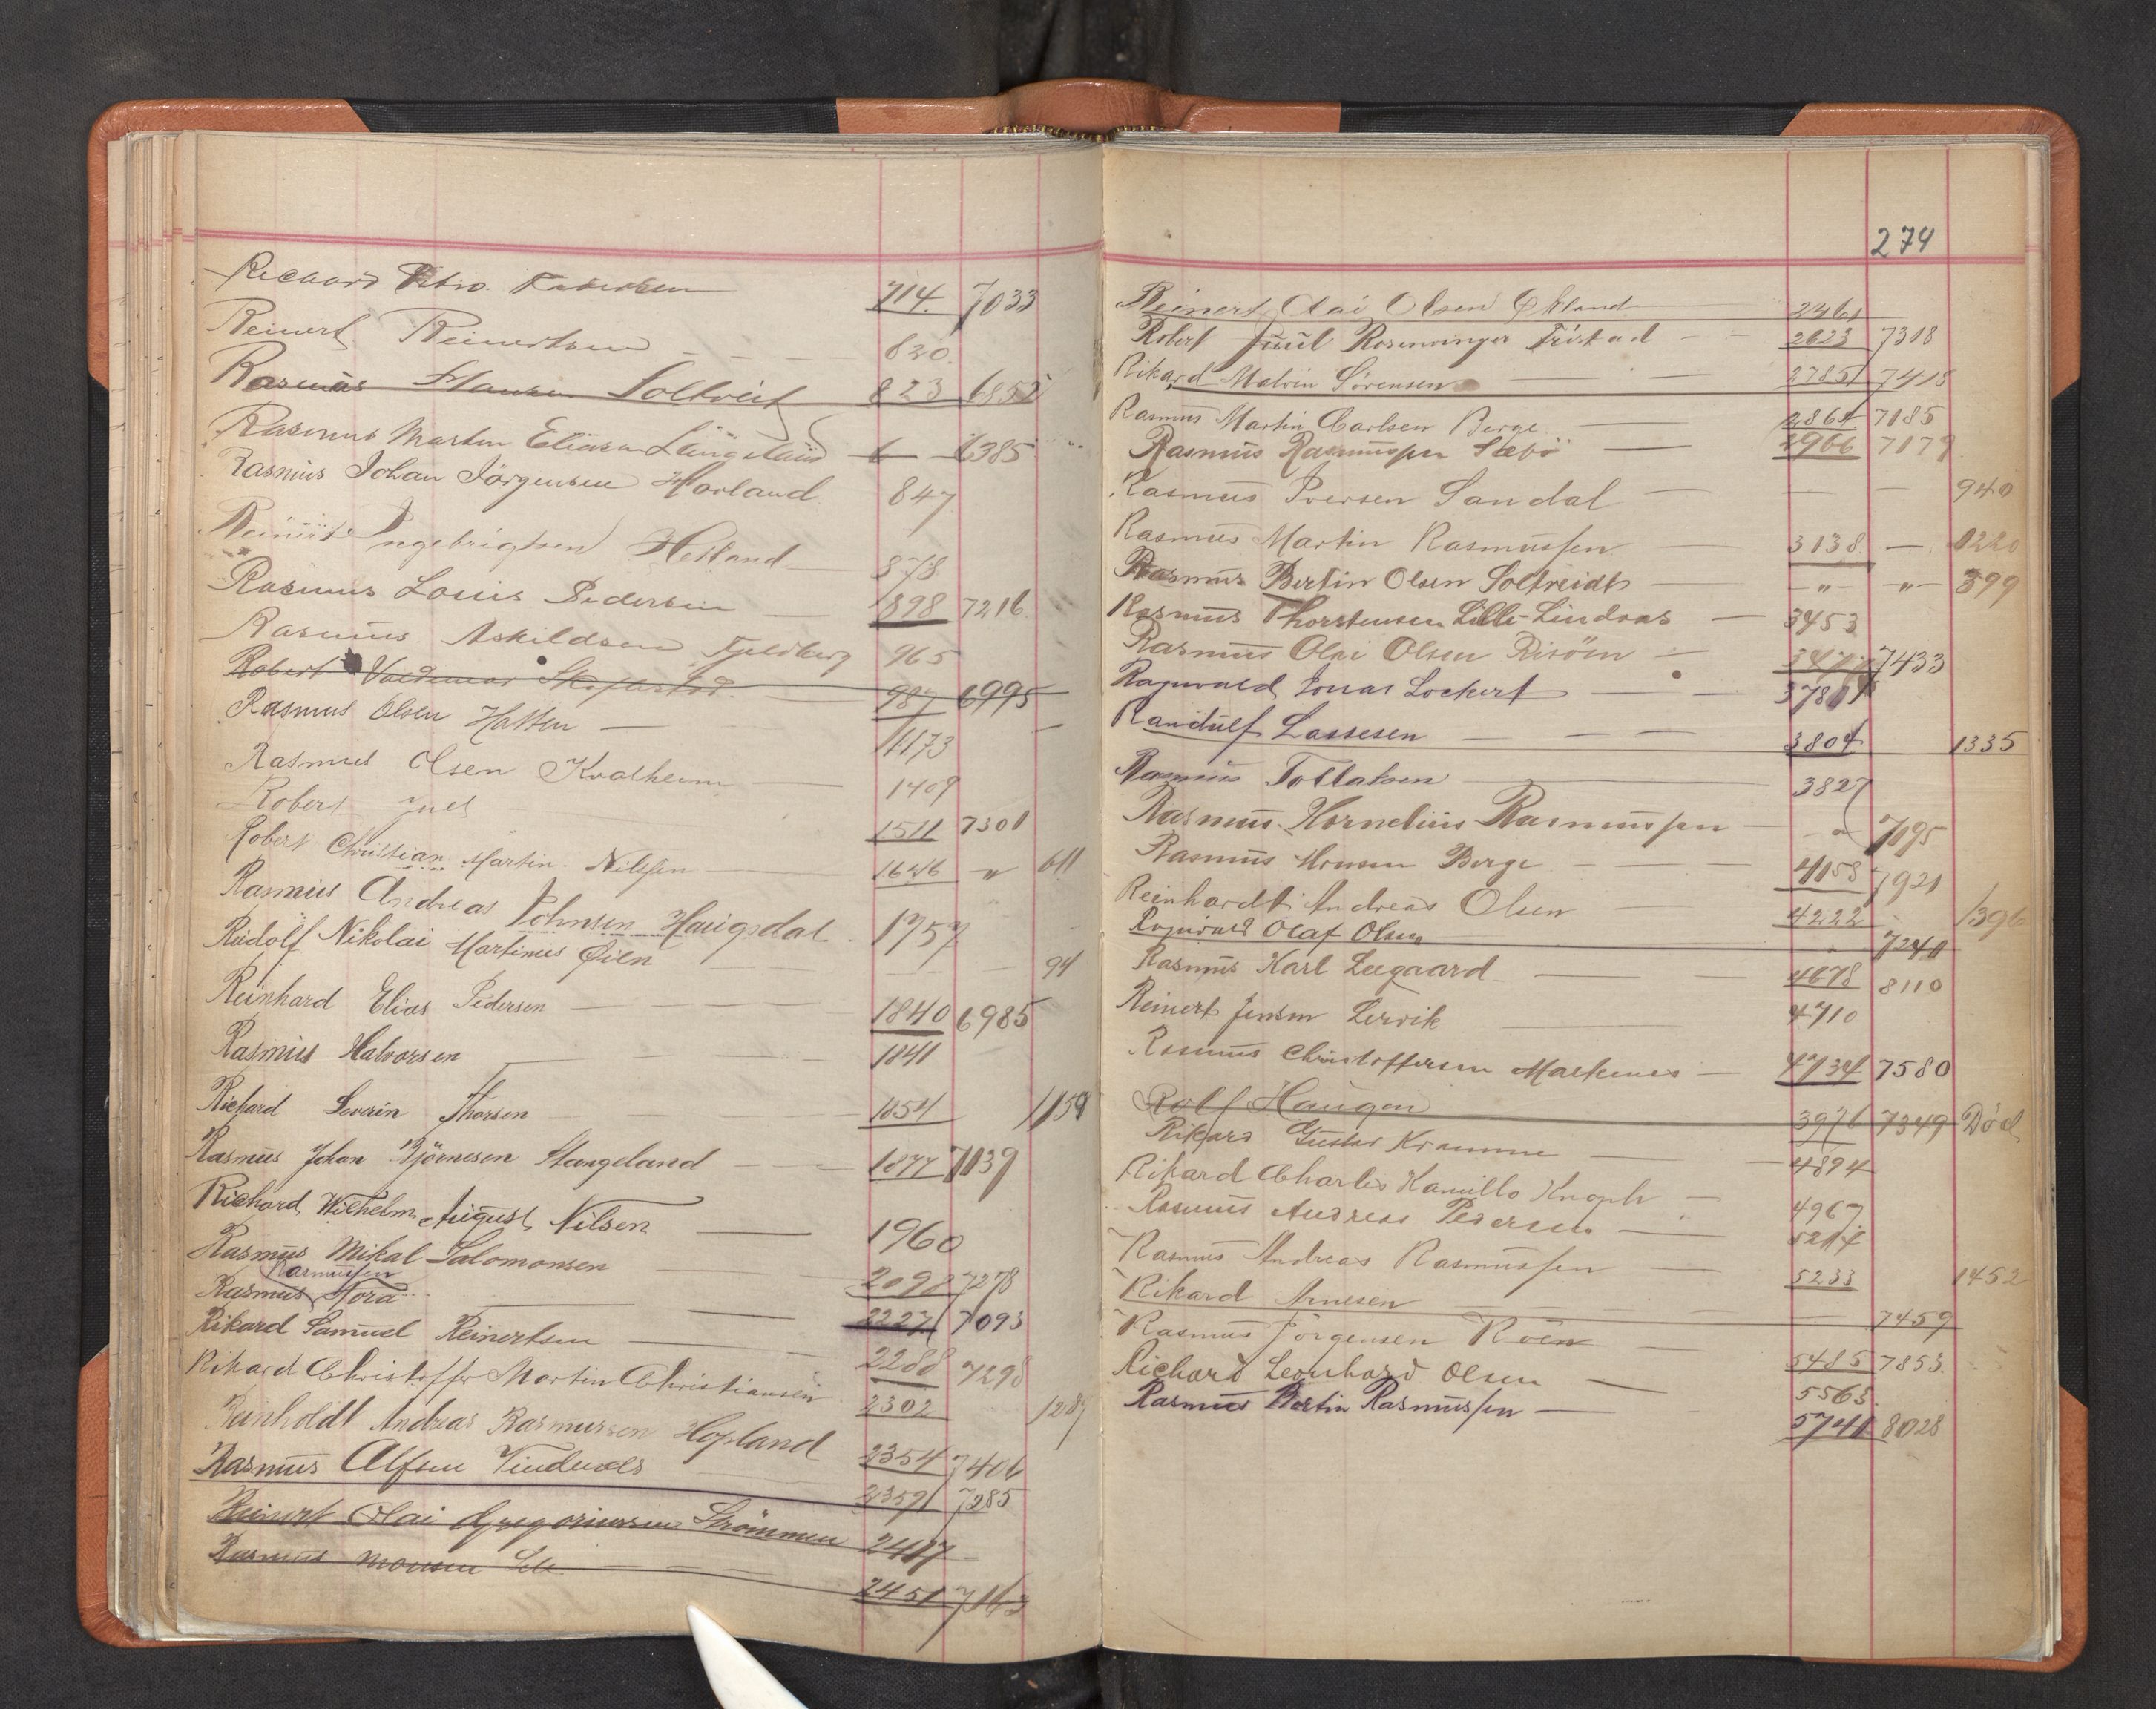 Reinert Reinertsen 820.
Rasmus Hansen Soltveit 823 6852
Rasmus Martin Eliasen 6385
Rasmus Johan Jörgensen Havland 847
Reinert Ingebrigtsen Hetland 878
Rasmus Louis Pedersen 898 7216
Rasmus Askildsen Fjeldberg 965
Robert Valdemar 987 6995
Rasmus Olsen Hatten 1173
Rasmus Olsen Kvalheim 1409
Robert Juel 1511 7301
Robert Christian Martin Nilssen 1646 " 611
Rasmus Andreas Johnsen Haugsdal 1757
Rudolf Nikolai Martinus Øien — — 94
Reinhard Elias Pedersen 1840 6985
Rasmus Halvorsen 1841
Richard Severin Thorsen 1854 1159
Rasmus Johan Björnesen Stangeland 1877 7139
Richard Wilhelm August Nilsen 1960
Rasmus Mikal Salomonsen 2098 7278
Rasmussen
Rasmus Tora 2227 7093
Rikard Samuel Reinertsen 2288 7298
Rikard Christoffer Martin Christiansen 2302 1287
Reinholdt Andreas Rasmussen Hopland 2354 7406
Rasmus Alfsen Vindenes 2359 7285
Reinert Olai Gregoriussen Strömmen 2417
Rasmus Monsen 2451 7163
274
Reinert Olai Olsen 2461
Robert Juul Rosenvinge Fristad 2623 7318
Rikard Malvin Sörensen 2785 7418
Rasmus Martin Carlsen Berge 2864 7185
Rasmus Rasmussen Sæbö 2966 7179
Rasmus Iversen Sandal — — 940
Rasmus Martin Rasmussen 3138 — 1220
Rasmus Bertin Olsen Soltveidt " " 899
Rasmus Thorstensen Lille-Lindaas 3453
Rasmus Olai Olsen Risöen 7433
Ragnvald Jonas Lockert
Randulf Lassesen 3804 1335
Rasmus Tollaksen 3827
Rasmus Kornelius Rasmussen " 7195
Rasmus Monsen Berge 4158 7921
Reinhardt Andreas Olsen 4222 1396
Ragnvald Olaf Olsen " 7240
Rasmus Karl Leegaard 4678 8110
Reinert Jensen Lervik 4710
Rasmus Christoffersen Markenes 4734 7580
Rolf Haugen 3976 7349 Död
Rikard Gustav Kramme 4894
Rikard Charles Kamillo Knoph 4967
Rasmus Andreas Pedersen 5214
Rasmus Andreas Rasmussen 5233 1452
Rikard Arnesen — 7459
Rasmus Jörgensen Röen 5485 7853
Richard Leonhard Olsen 5563
Rasmus Martin Rasmussen 5741 8028